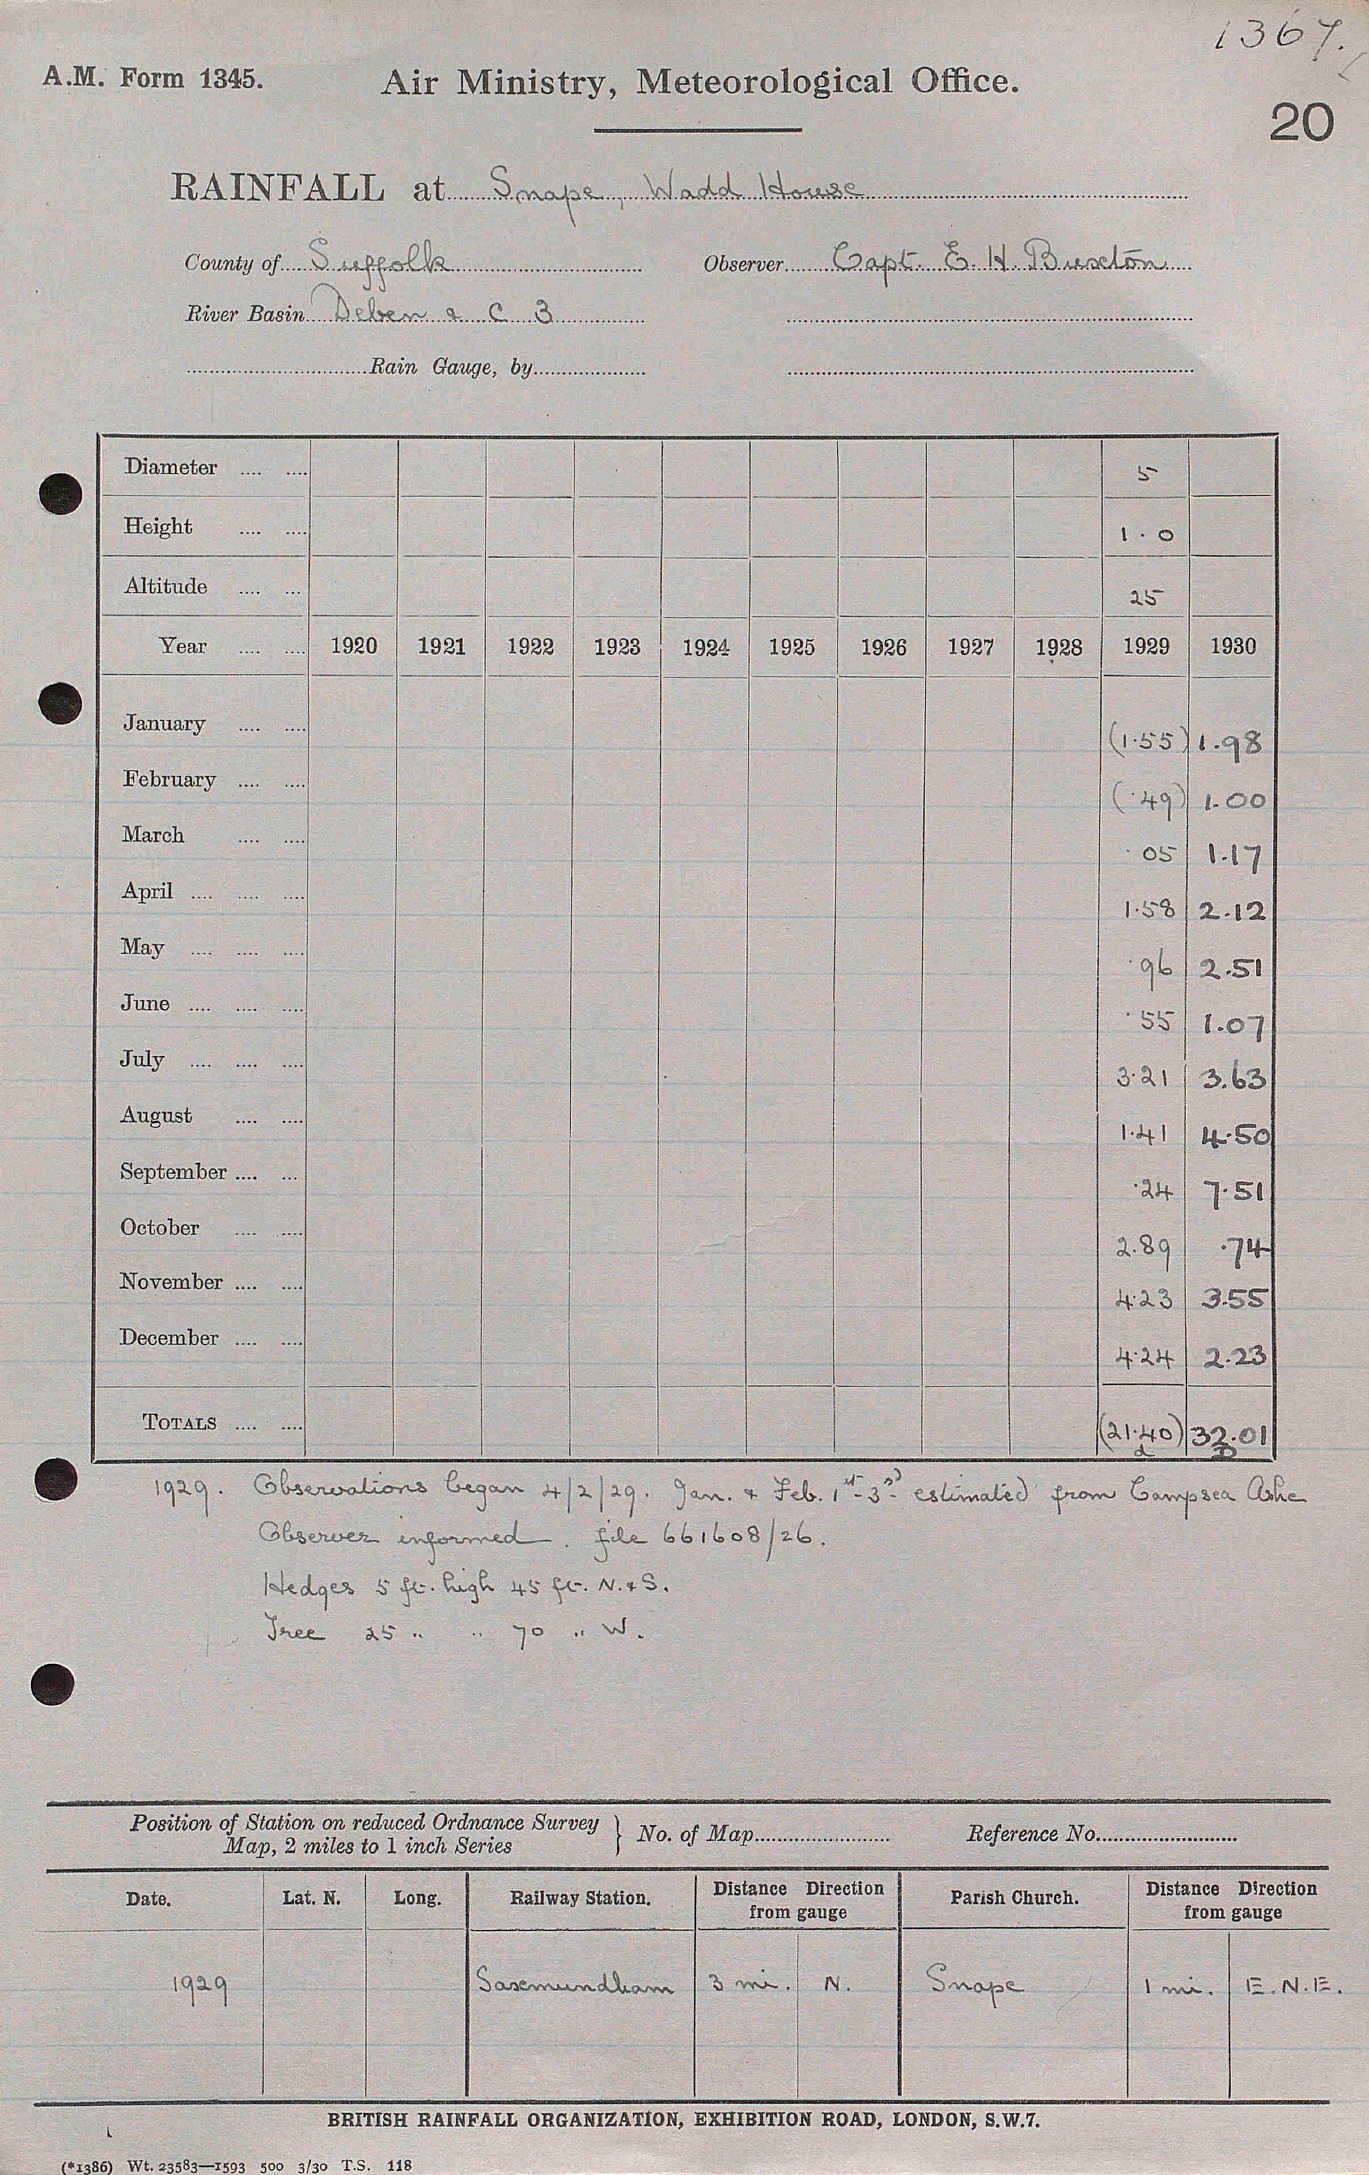 1367.
A.M. Form 1345. Air Ministry, Meteorological Office.
20
RAINFALL at Snape, Wadd House
County of Suffolk Observer Capt. E. H. Buxton
River Basin Deben & C 3
Rain Gauge, by
Diameter .... .... 5
Height .... .... 1.0
Altitude .... ... 25
Year .... .... 1920 1921 1922 1923 1924 1925 1926 1927 1928 1929 1930
January .... .... (1.55) 1.98
February .... .... (.49) 1.00
March .... .... .05 1.17
April .... .... .... 1.58 2.12
May .... .... .... .96 2.51
June .... .... .... .55 1.07
July .... .... .... 3.21 3.63
August .... .... 1.41 4.50
September .... ... .24 7.51
October .... .... 2.89 .74
November .... .... 4.23 3.55
December .... .... 4.24 2.23
TOTALS .... .... (21.40) 32.01
d D
1929. Observations began 4/2/29. Jan. & Feb. 1st-3rd estimated from Campsea Ashe
Observer informed. file 661608/26.
Hedges 5 ft. high 45 ft. N. & S.
Tree 25 " " 70 " W.
Position of Station on reduced Ordnance Survey
Map, 2 miles to 1 inch Series } No. of Map Reference No.
Date. Lat. N. Long. Railway Station. Distance Direction from gauge Parish Church. Distance Direction from gauge
1929 Saxmundham 3 mi. N. Snape 1 mi. E.N.E.
BRITISH RAINFALL ORGANIZATION, EXHIBITION ROAD, LONDON, S.W.7.
(*1386) Wt. 23583—1593 500 3/30 T.S. 118